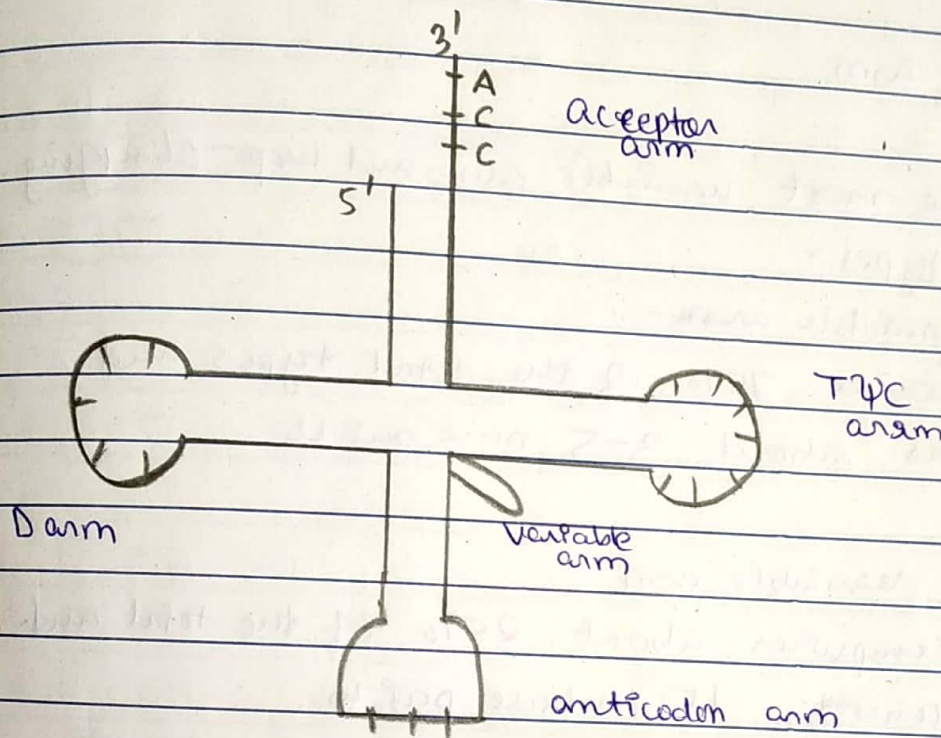 3'
A
C
C
acceptor
arm
5'
TψC
arm
D arm
variable
arm
anticodon arm